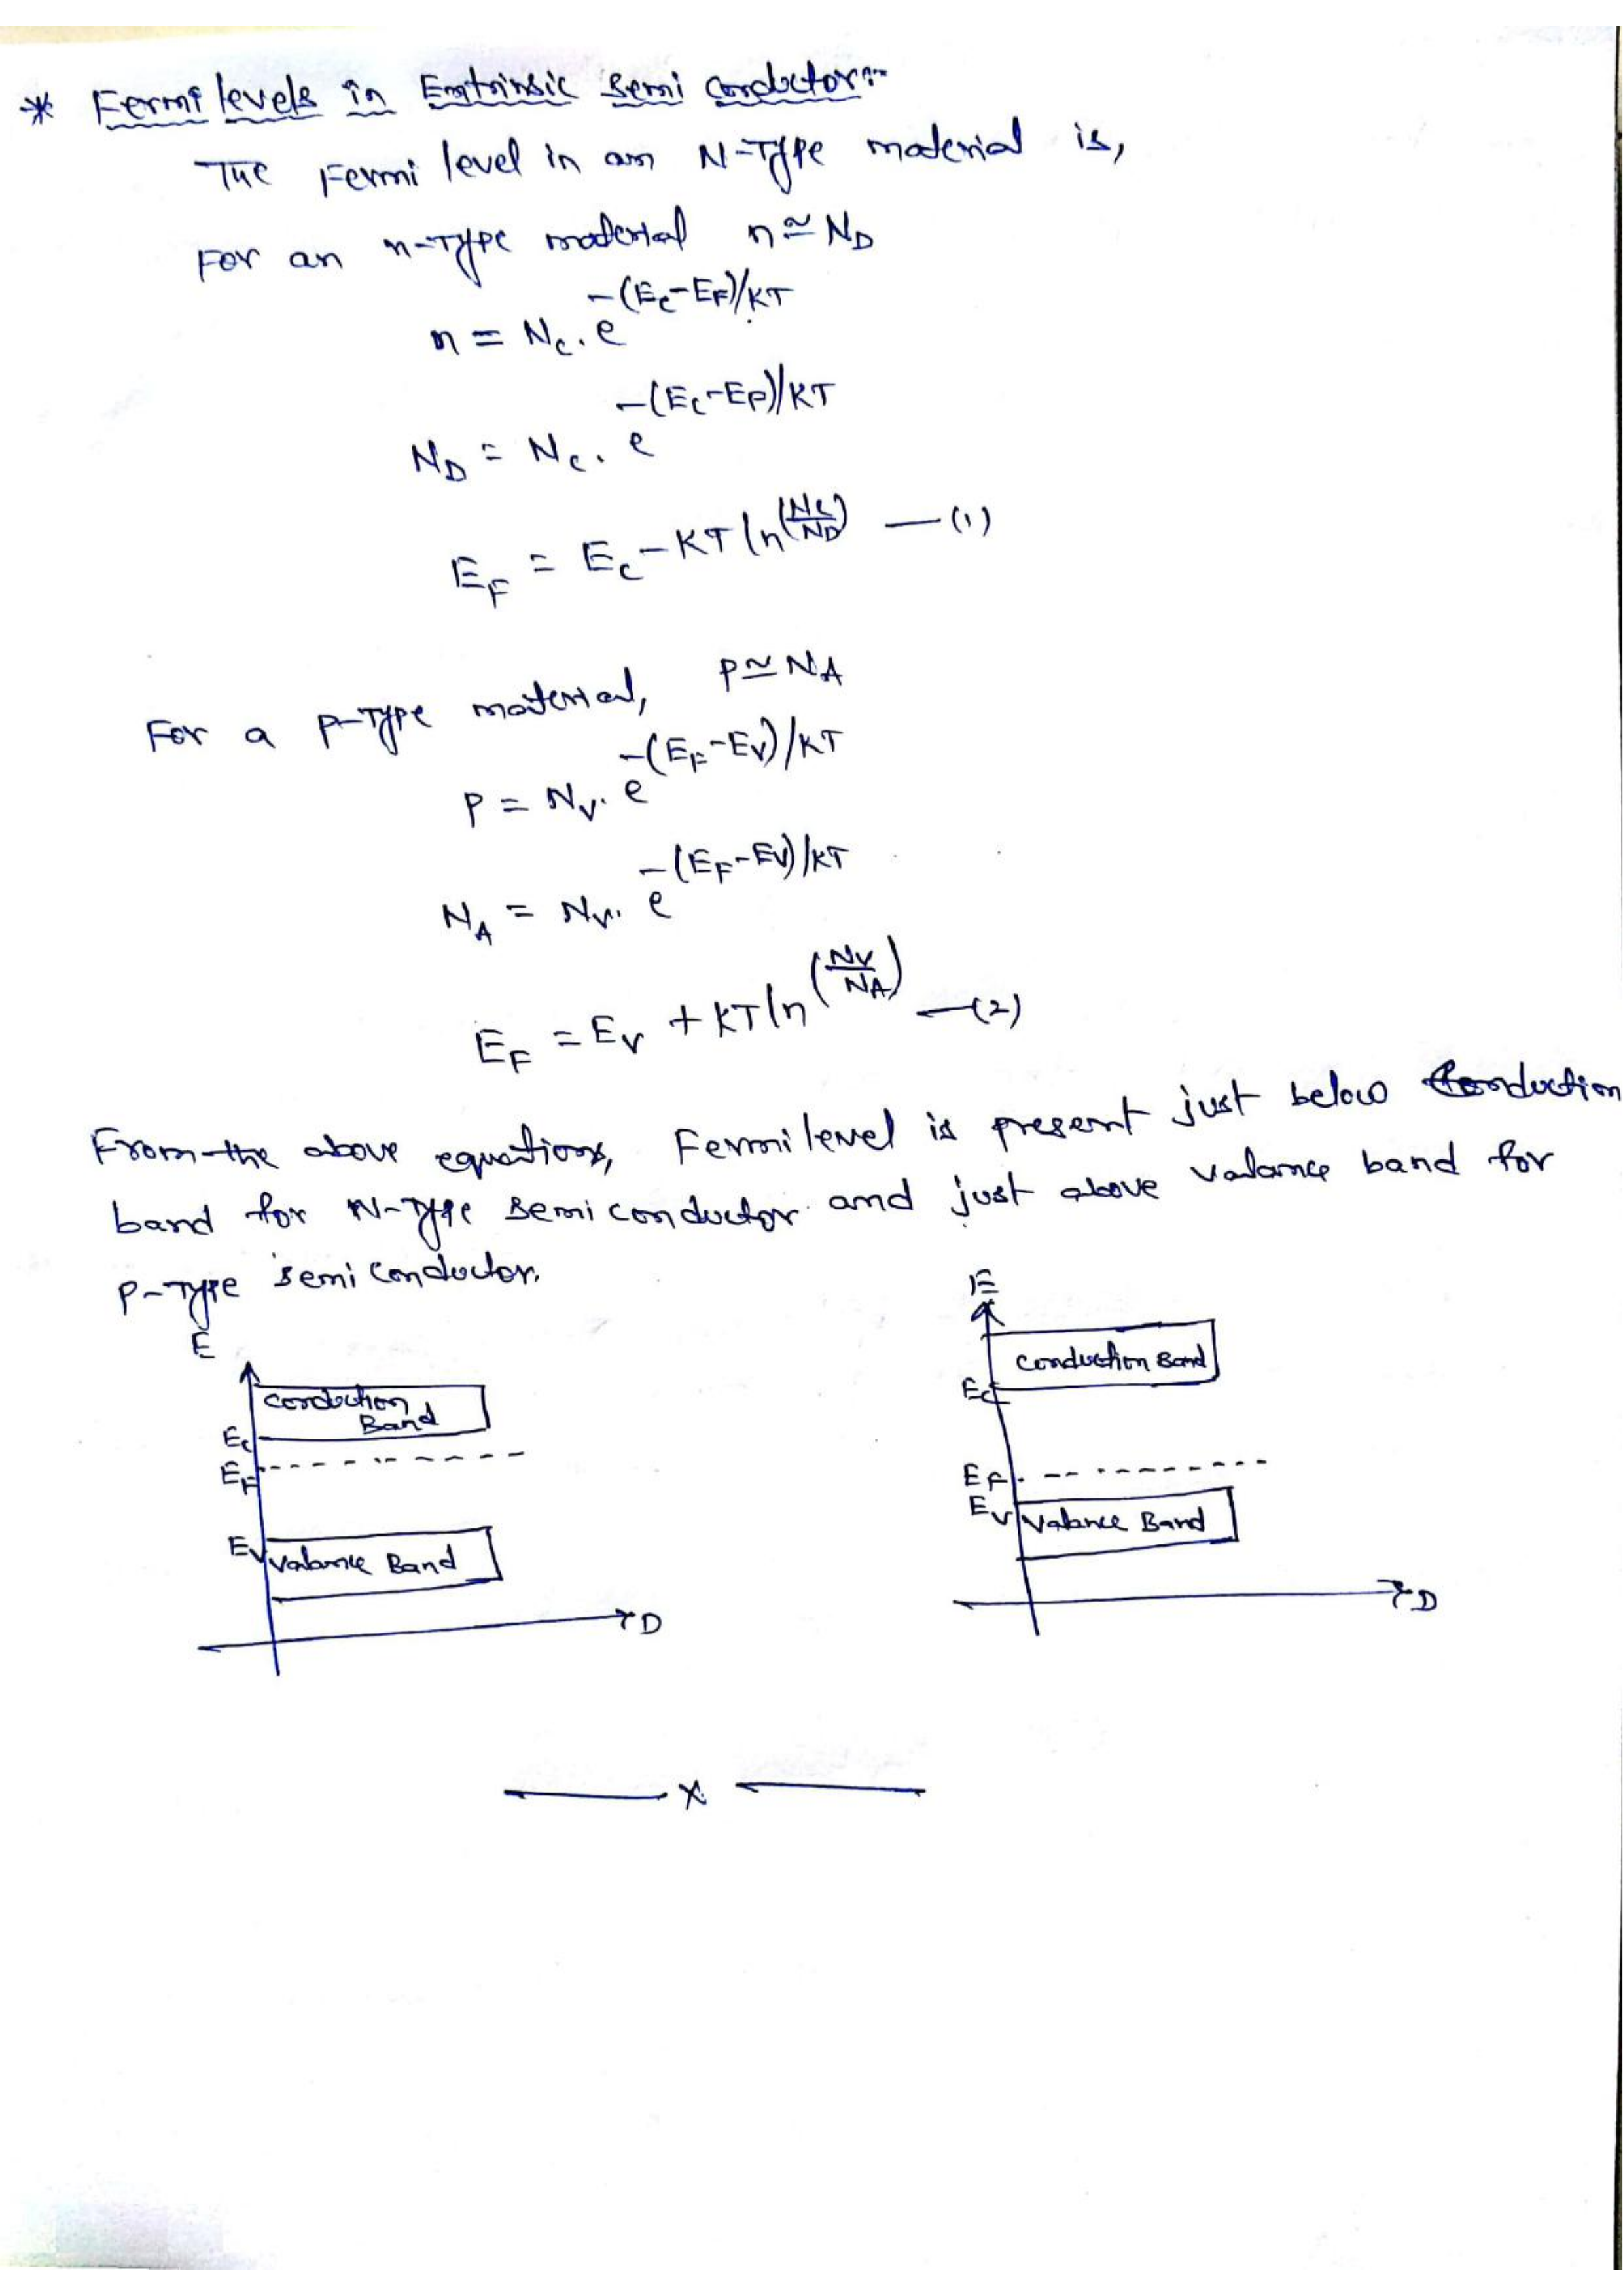 * Fermi levels in Extrinsic Semi conductor:-
The Fermi level in an N-Type material is,
For an n-Type material n ≃ ND
n = Nc. e^-(Ec-EF)/KT
ND = Nc. e^-(Ec-EF)/KT
EF = Ec - KT ln(Nc/ND) — (1)
For a p-Type material, p ≃ NA
P = Nv. e^-(EF-Ev)/KT
NA = Nv. e^-(EF-Ev)/KT
EF = Ev + KT ln(Nv/NA) — (2)
From the above equations, Fermi level is present just below Conduction
band for N-Type semi conductor and just above valance band for
P-Type semi conductor.
E
Conduction
Band
Ec
EF
Ev Valance Band
D
E
Conduction Band
Ec
EF
Ev Valance Band
D
— x —